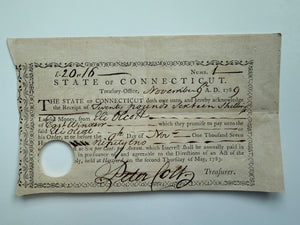 £20.16 NUMB. 1
STATE OF CONNECTICUT.
Treasury-Office, November 9 A. D. 1789
THE STATE OF CONNECTICUT doth owe unto, and hereby acknowledge
the Receipt of Twenty pounds Sixteen Shillings
Lawful Money, from Eli Olcott
East Windsor which they promise to pay unto the
said Eli Olcott
on 9th Day of Nov One Thousand Seven
Hundred ninety two
at Six per Cent. per Annum, which Interest shall be annually paid
and agreeable to the Directions of an Act of the
held at Hartford on the second Thursday of May, 1789.
Treasurer.